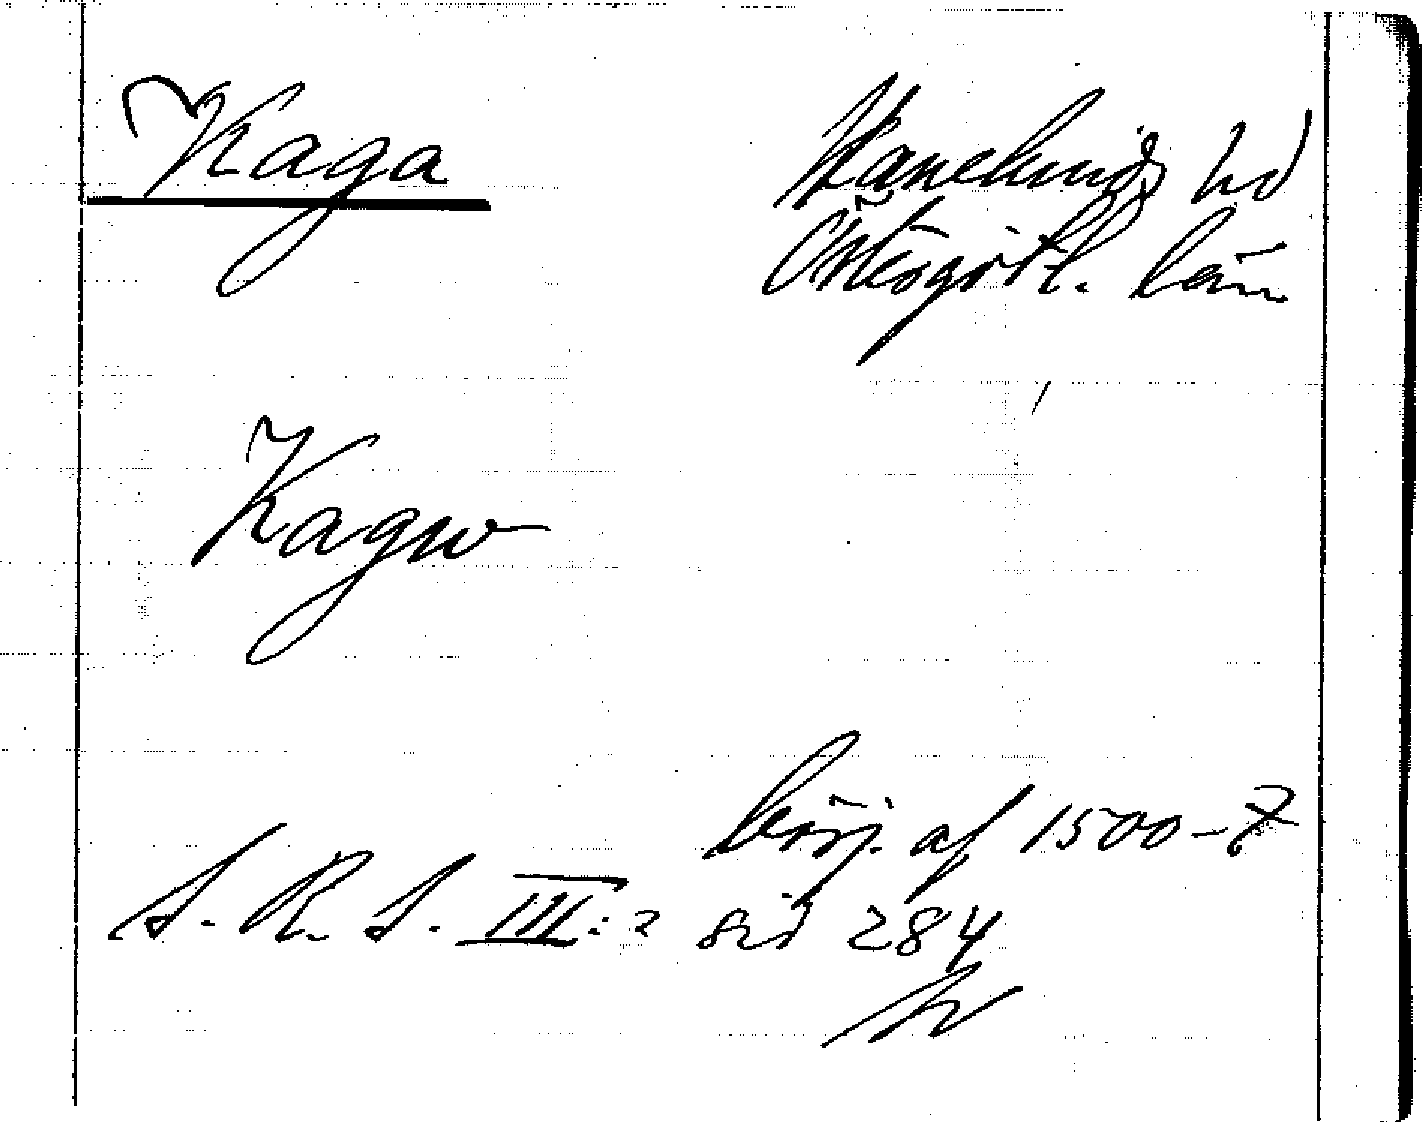 Kaga
Hanekinds hd
Östergötl. län
Kagw
börj. af 1500-t
S. R. S. III:2 sid 284